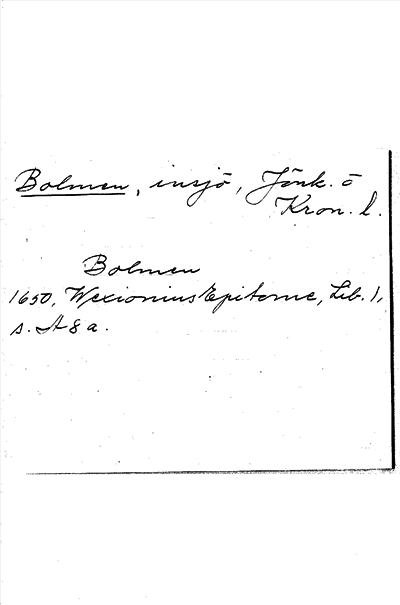 Bolmen, insjö, Jönk. o
Kron. l.
Bolmen
1650, Wexionius Epitome, Lib. 1,
s. A 8 a.